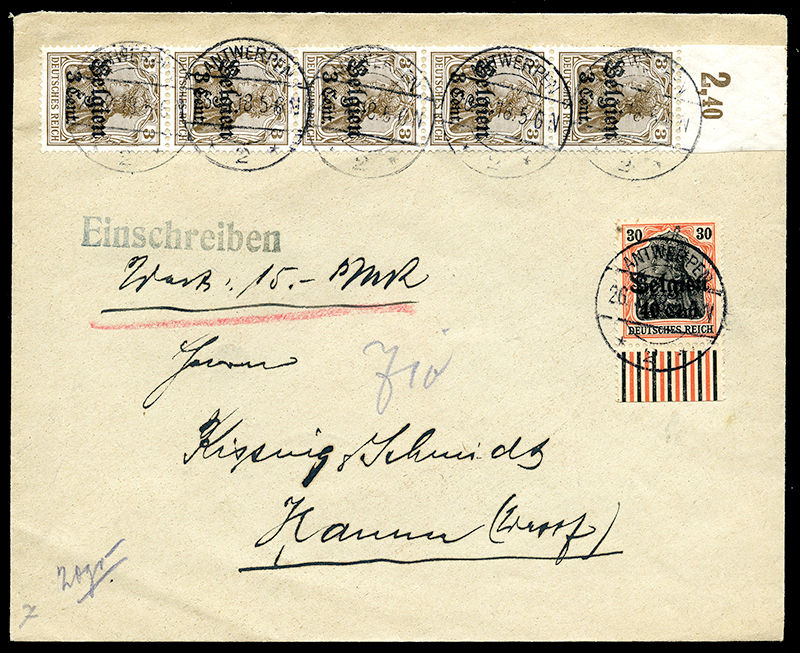 3 3 DEUTSCHES REICH Belgien 3 Cent.
3 3 DEUTSCHES REICH Belgien 3 Cent.
3 3 DEUTSCHES REICH Belgien 3 Cent.
3 3 DEUTSCHES REICH Belgien 3 Cent.
3 3 DEUTSCHES REICH Belgien 3 Cent.
2,40
ANTWERPEN
ANTWERPEN
ANTWERPEN
2
2
2
2
2
Einschreiben
Wert: 15.- Mrk
30 30
ANTWERPEN
Belgien
40 Cent.
DEUTSCHES REICH
2
Herrn
Kissing & Schmidt
Hamm (Westf)
7